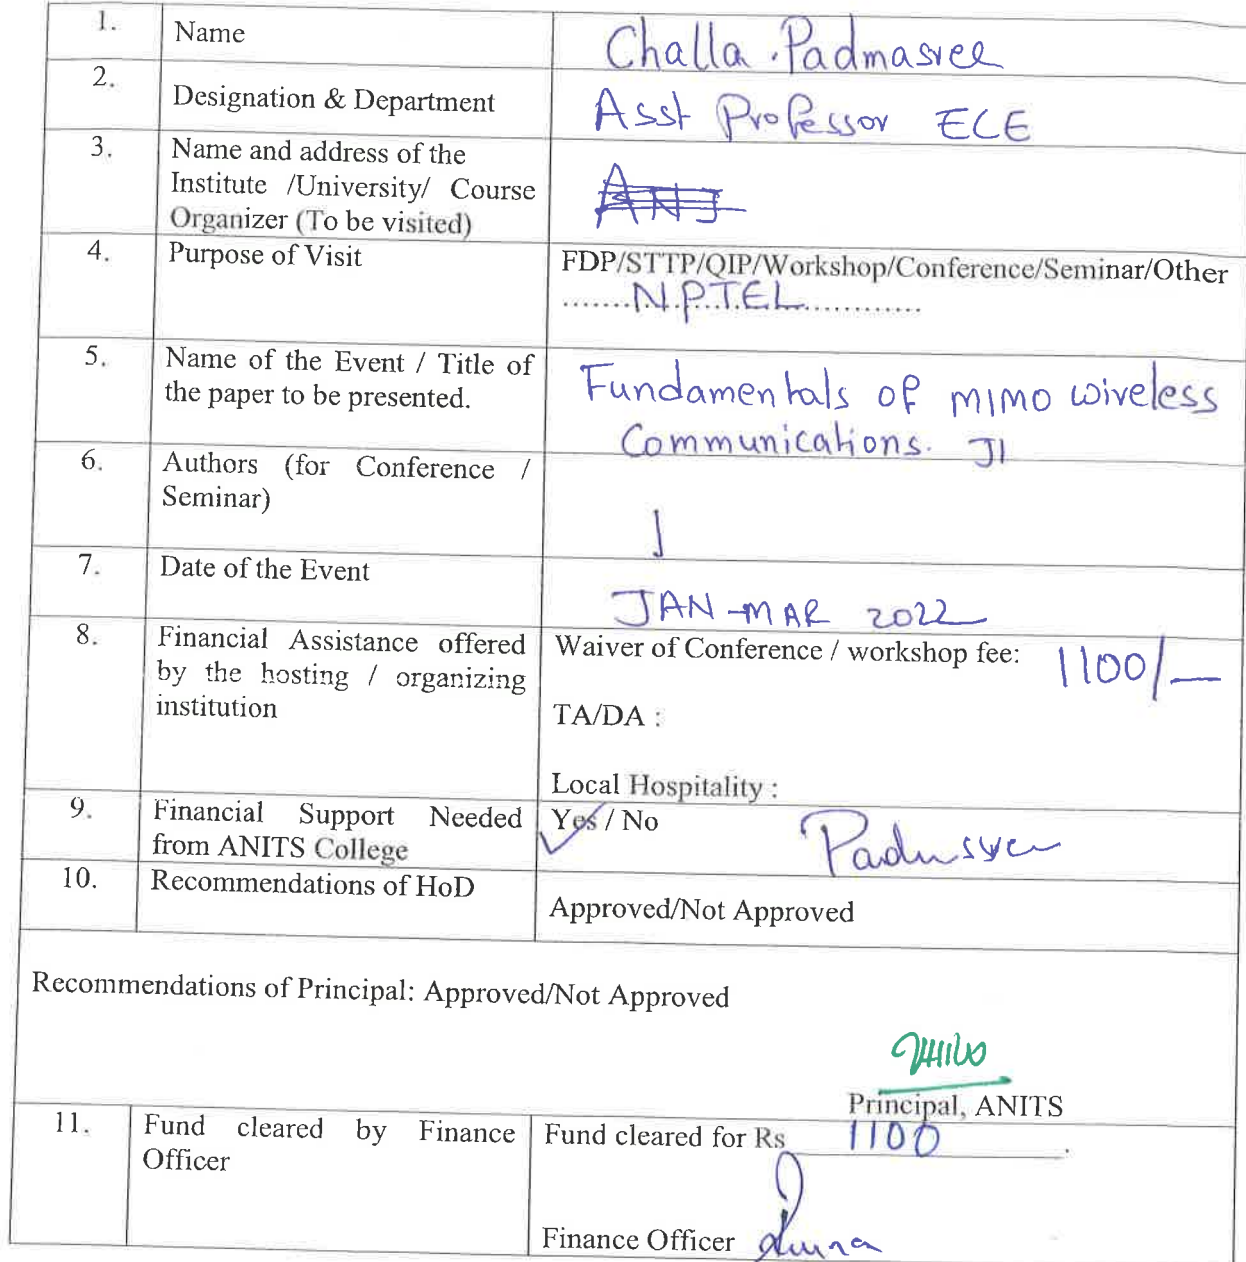 1. Name Challa . Padmasree
2. Designation & Department Asst Professor ECE
3. Name and address of the
Institute /University/ Course
Organizer (To be visited)
4. Purpose of Visit FDP/STTP/QIP/Workshop/Conference/Seminar/Other
.......N.P.T.E.L.............
5. Name of the Event / Title of
the paper to be presented.
Fundamentals of MIMO wireless
Communications.
6. Authors (for Conference /
Seminar)
7. Date of the Event JAN-MAR 2022
8. Financial Assistance offered
by the hosting / organizing
institution
Waiver of Conference / workshop fee: 1100/-
TA/DA :
Local Hospitality :
9. Financial Support Needed
from ANITS College
Yes / No
10. Recommendations of HoD
Approved/Not Approved
Recommendations of Principal: Approved/Not Approved
Principal, ANITS
11. Fund cleared by Finance
Officer
Fund cleared for Rs 1100.
Finance Officer